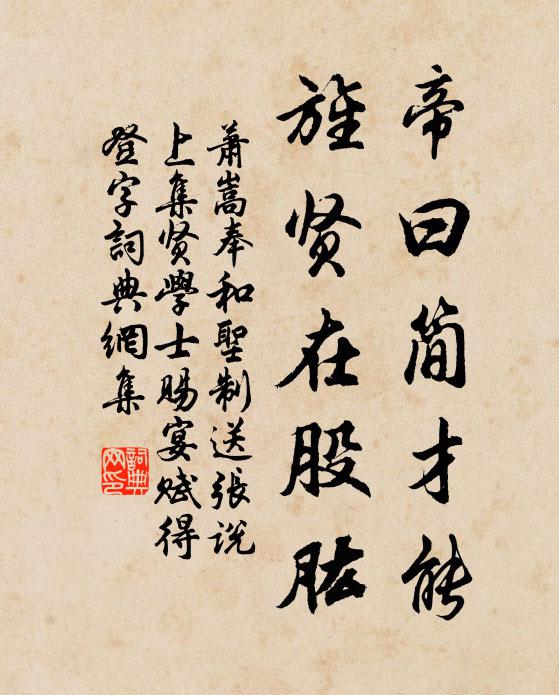 帝曰简才能
旌贤在股肱
萧嵩奉和聖制送张说
上集贤學士赐宴赋得
登字詞典網集
詞典
网印